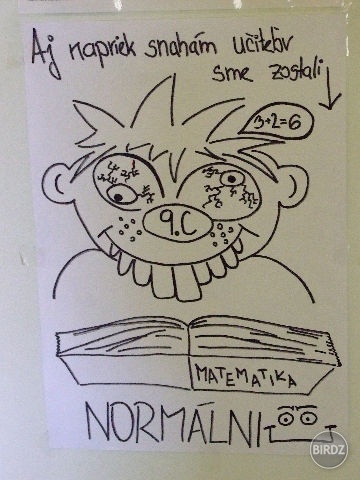 Aj napriek snahám učiteľov
sme zostali
3+2=6
9.C
MATEMATIKA
NORMÁLNI
BIRDZ